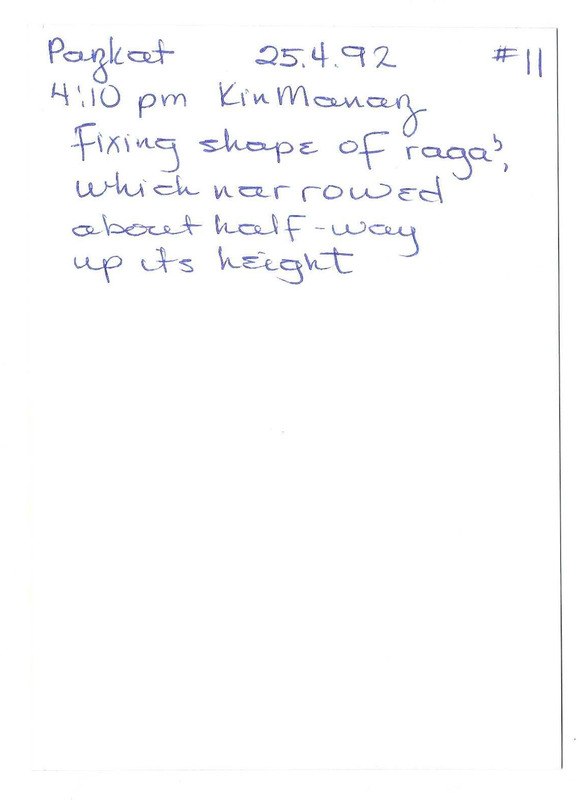 Pazkat 25.4.92 #11
4:10 pm Kin Manaz
Fixing shape of raga',
which narrowed
about half-way
up its height